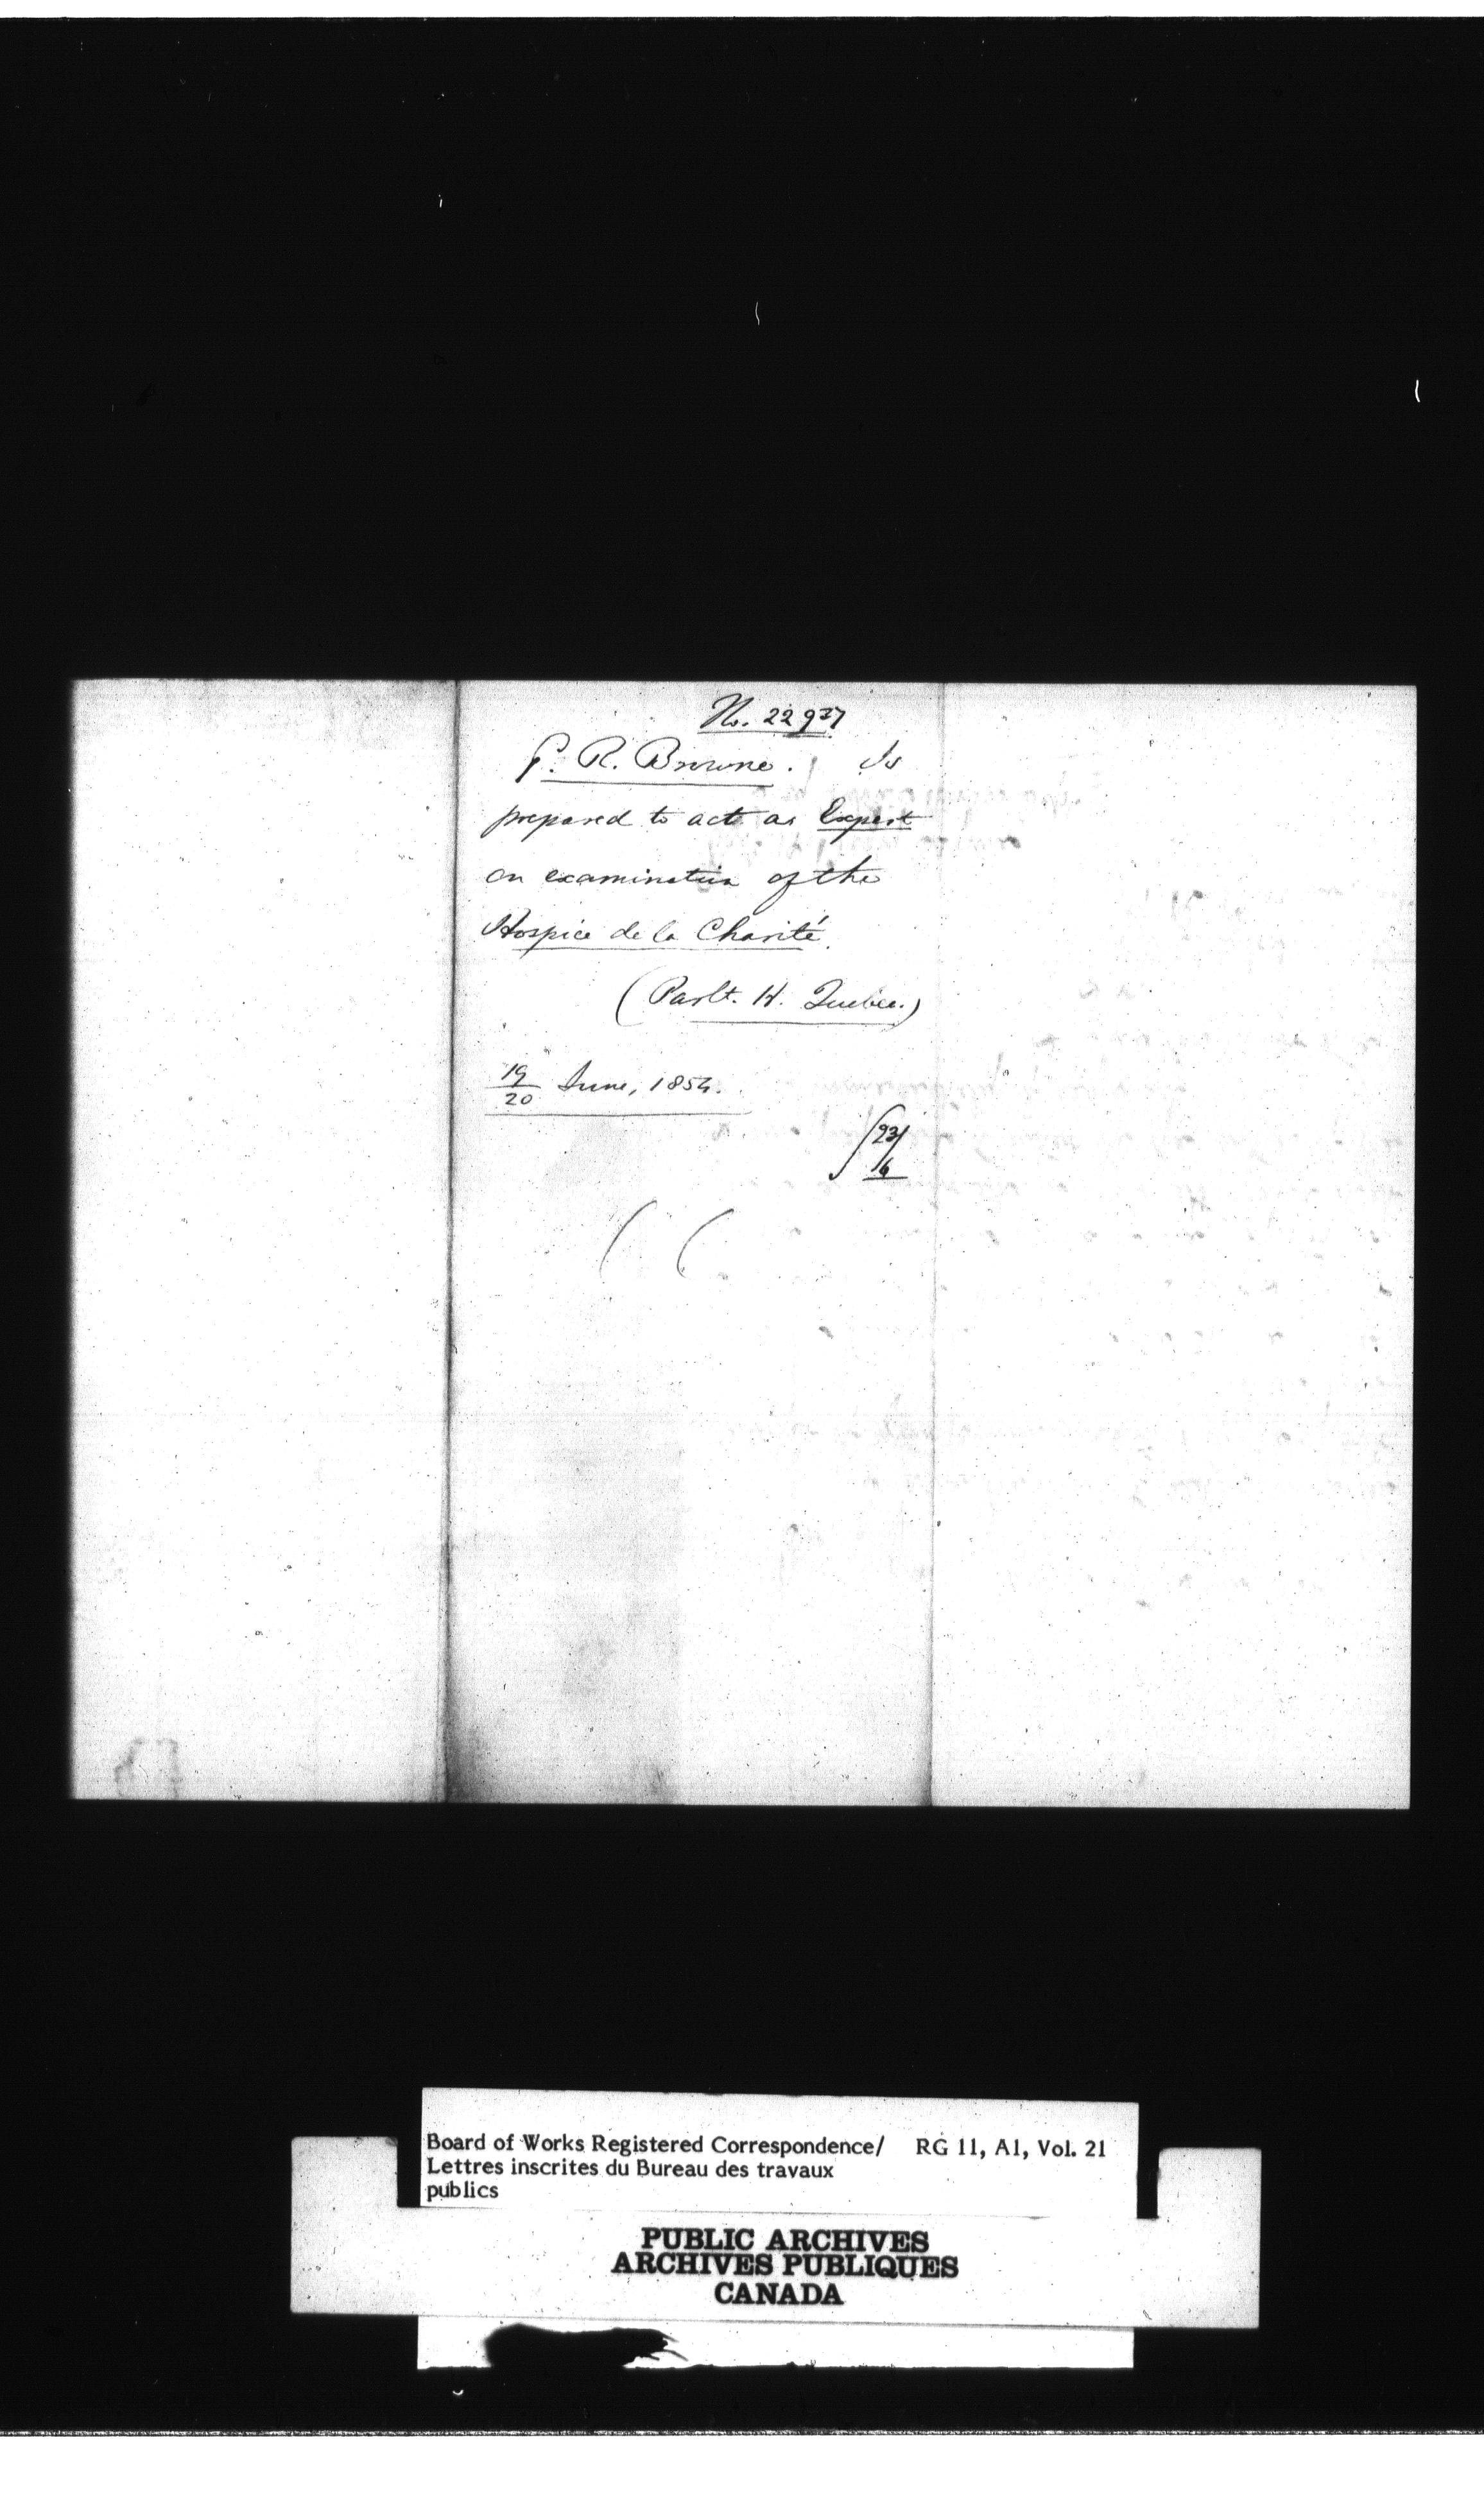 No. 22937
G. R. Browne. Is
prepared to act as Expert
on examination of the
Hospice de la Charité.
(Parlt. H. Quebec.)
19/20 June, 1854.
23/6
Board of Works Registered Correspondence/ RG 11, A1, Vol. 21
Lettres inscrites du Bureau des travaux
publics
PUBLIC ARCHIVES
ARCHIVES PUBLIQUES
CANADA